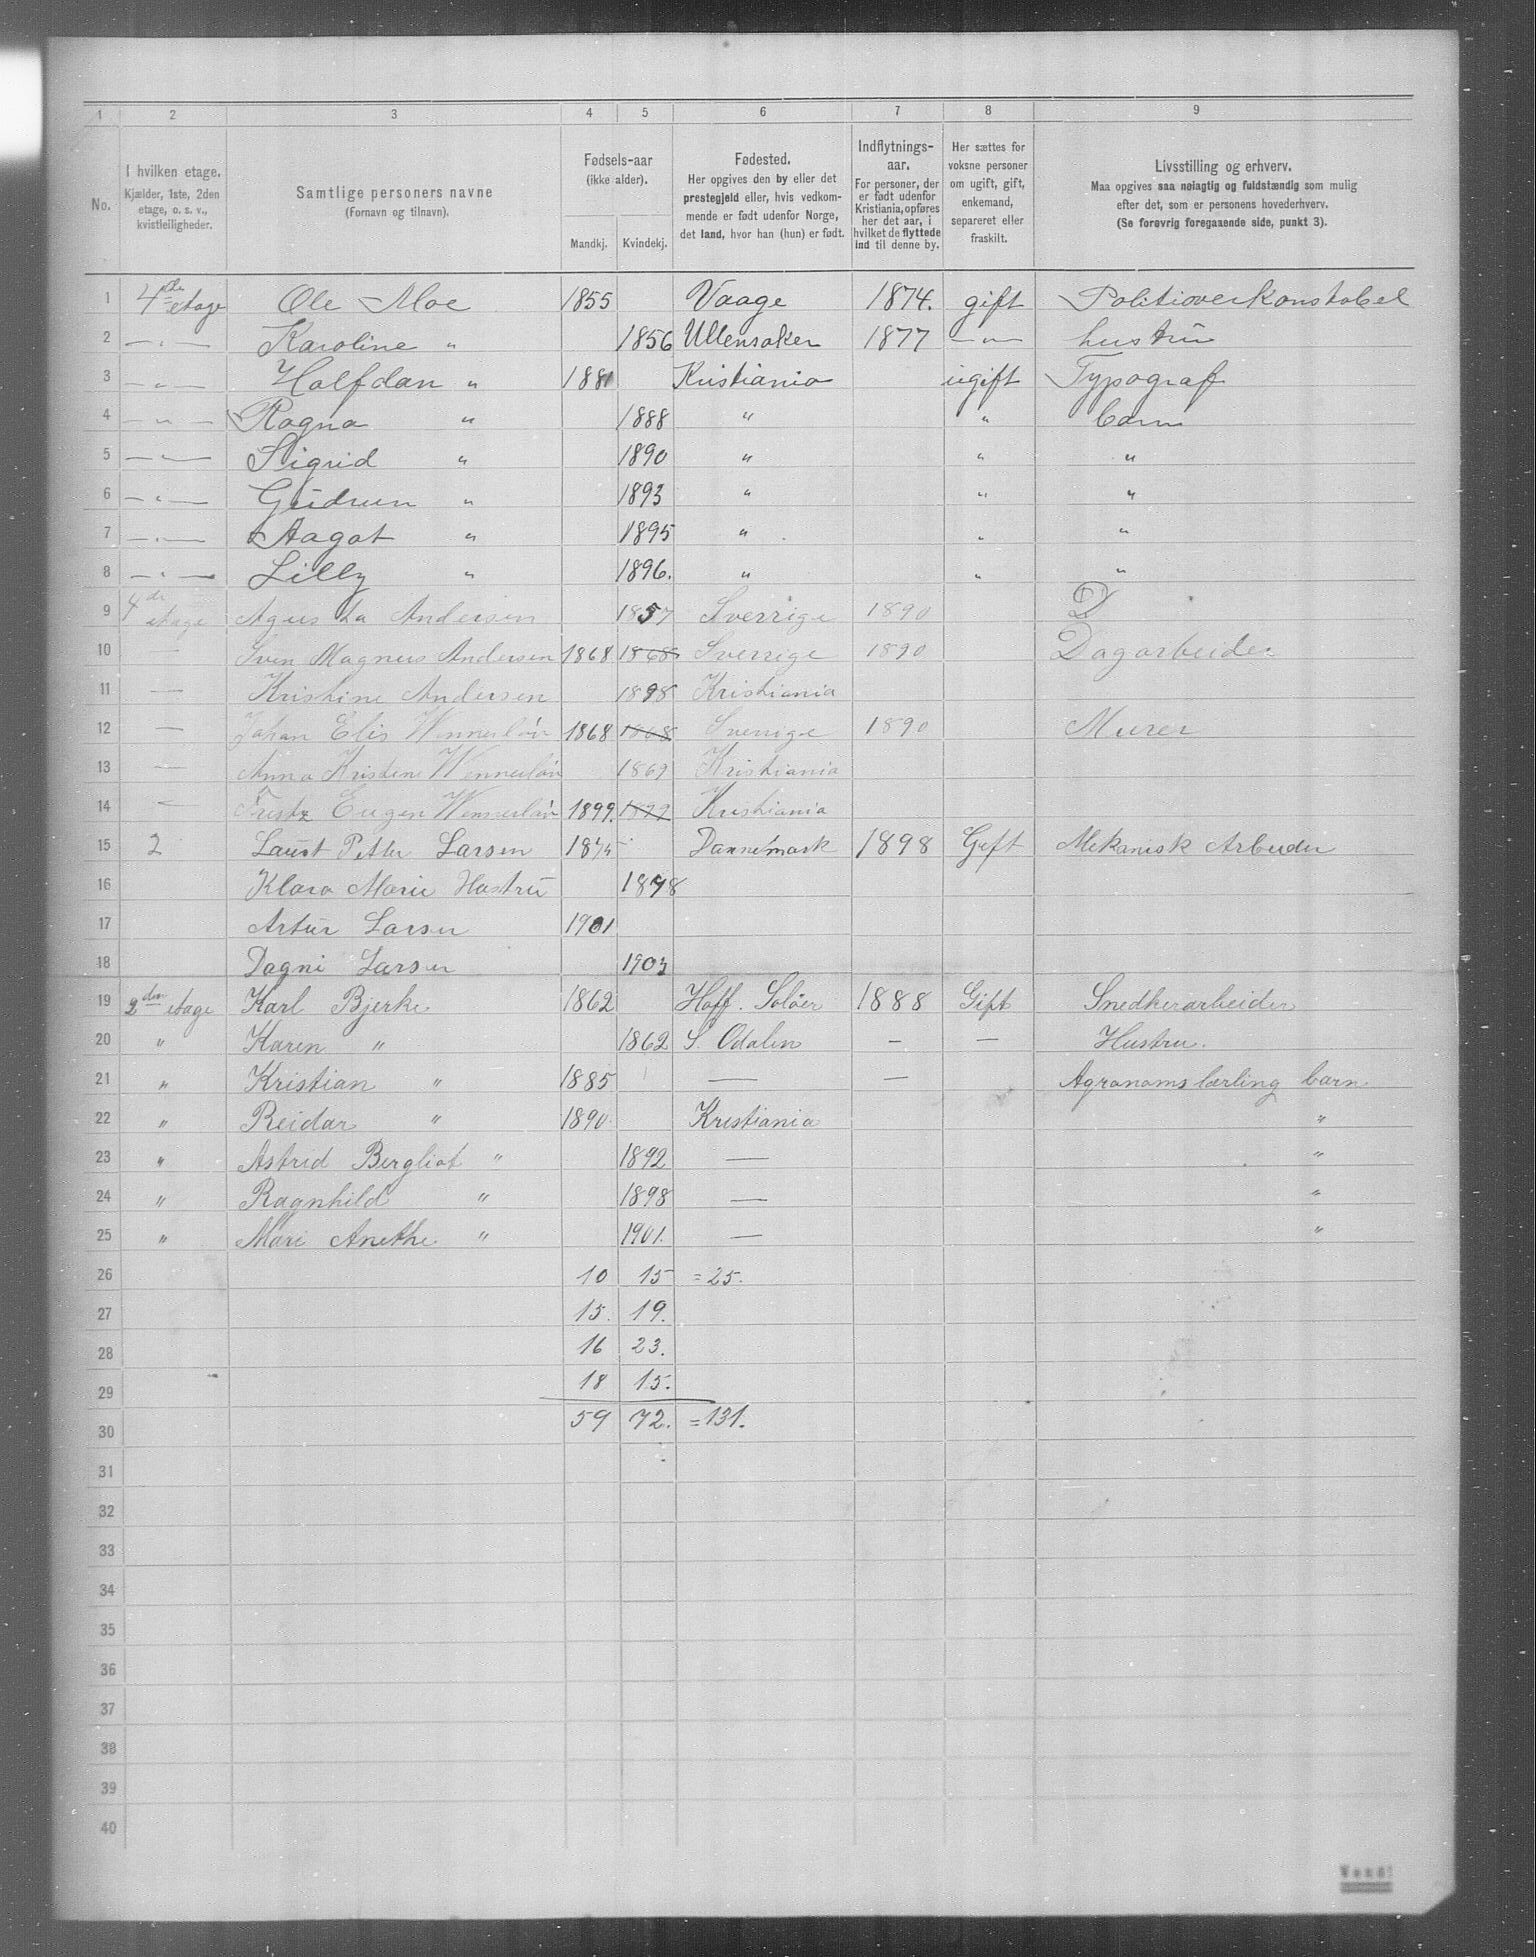 1 2 3 4 5 6 7 8 9
No.
I hvilken etage.
Kjælder, 1ste, 2den
etage, o. s. v.,
kvistleiligheder.
Samtlige personers navne
(Fornavn og tilnavn).
Fødsels-aar
(ikke alder).
Mandkj. Kvindekj.
Fødested.
Her opgives den by eller det
prestegjeld eller, hvis vedkom-
mende er født udenfor Norge,
det land, hvor han (hun) er født.
Indflytnings-
aar.
For personer, der
er født udenfor
Kristiania, opføres
her det aar, i
hvilket de flyttede
ind til denne by.
Her sættes for
voksne personer
om ugift, gift,
enkemand,
separeret eller
fraskilt.
Livsstilling og erhverv.
Maa opgives saa nøiagtig og fuldstændig som mulig
efter det, som er personens hovederhverv.
(Se forøvrig foregaaende side, punkt 3).
1 4de etage Ole Moe 1855 Vaage 1874. gift Politioverkonstabel
2 — " — Karoline " 1856 Ullensaker 1877 — " — hustru
3 — " — Halfdan " 1881 Kristiania ugift Typograf
4 — " — Ragna " 1888 " " barn
5 — " — Sigrid " 1890 " " "
6 — " — Gudrun " 1893 " " "
7 — " — Aagot " 1895 " " "
8 — " — Lilly " 1896. " " "
9 4de etage Agusta Andersen 1857 Sverrige 1890 D
10 — Sven Magnus Andersen 1868 1868 Sverrige 1890 Dagarbeider
11 — Kristine Andersen 1898 Kristiania
12 — Johan Elis Wennerlöv 1868 1868 Sverrige 1890 Murer
13 — Anna Kristine Wennerlöv 1869 Kristiania
14 — Fristz Eugen Wennerlöv 1899. 1899 Kristiania
15 2 Laust Petter Larsen 1875 Dannemark 1898 Gift Mekanisk Arbeider
16 Klara Marie Hustru 1878
17 Artur Larsen 1901
18 Dagni Larsen 1903
19 2den etage Karl Bjerke 1862 Hoff. Soløer 1888 Gift Snedkerarbeider
20 " Karen " 1862 S. Odalen — — Hustru.
21 " Kristian " 1885 — — Agronomslærling barn
22 " Reidar " 1890 Kristiania "
23 " Astrid Bergliot " 1892 — "
24 " Ragnhild " 1898 — "
25 " Mari Anethe " 1901. — "
26 10 15 = 25.
27 15. 19.
28 16 23.
29 18 15.
30 59 72. = 131.
31
32
33
34
35
36
37
38
39
40
Vend!